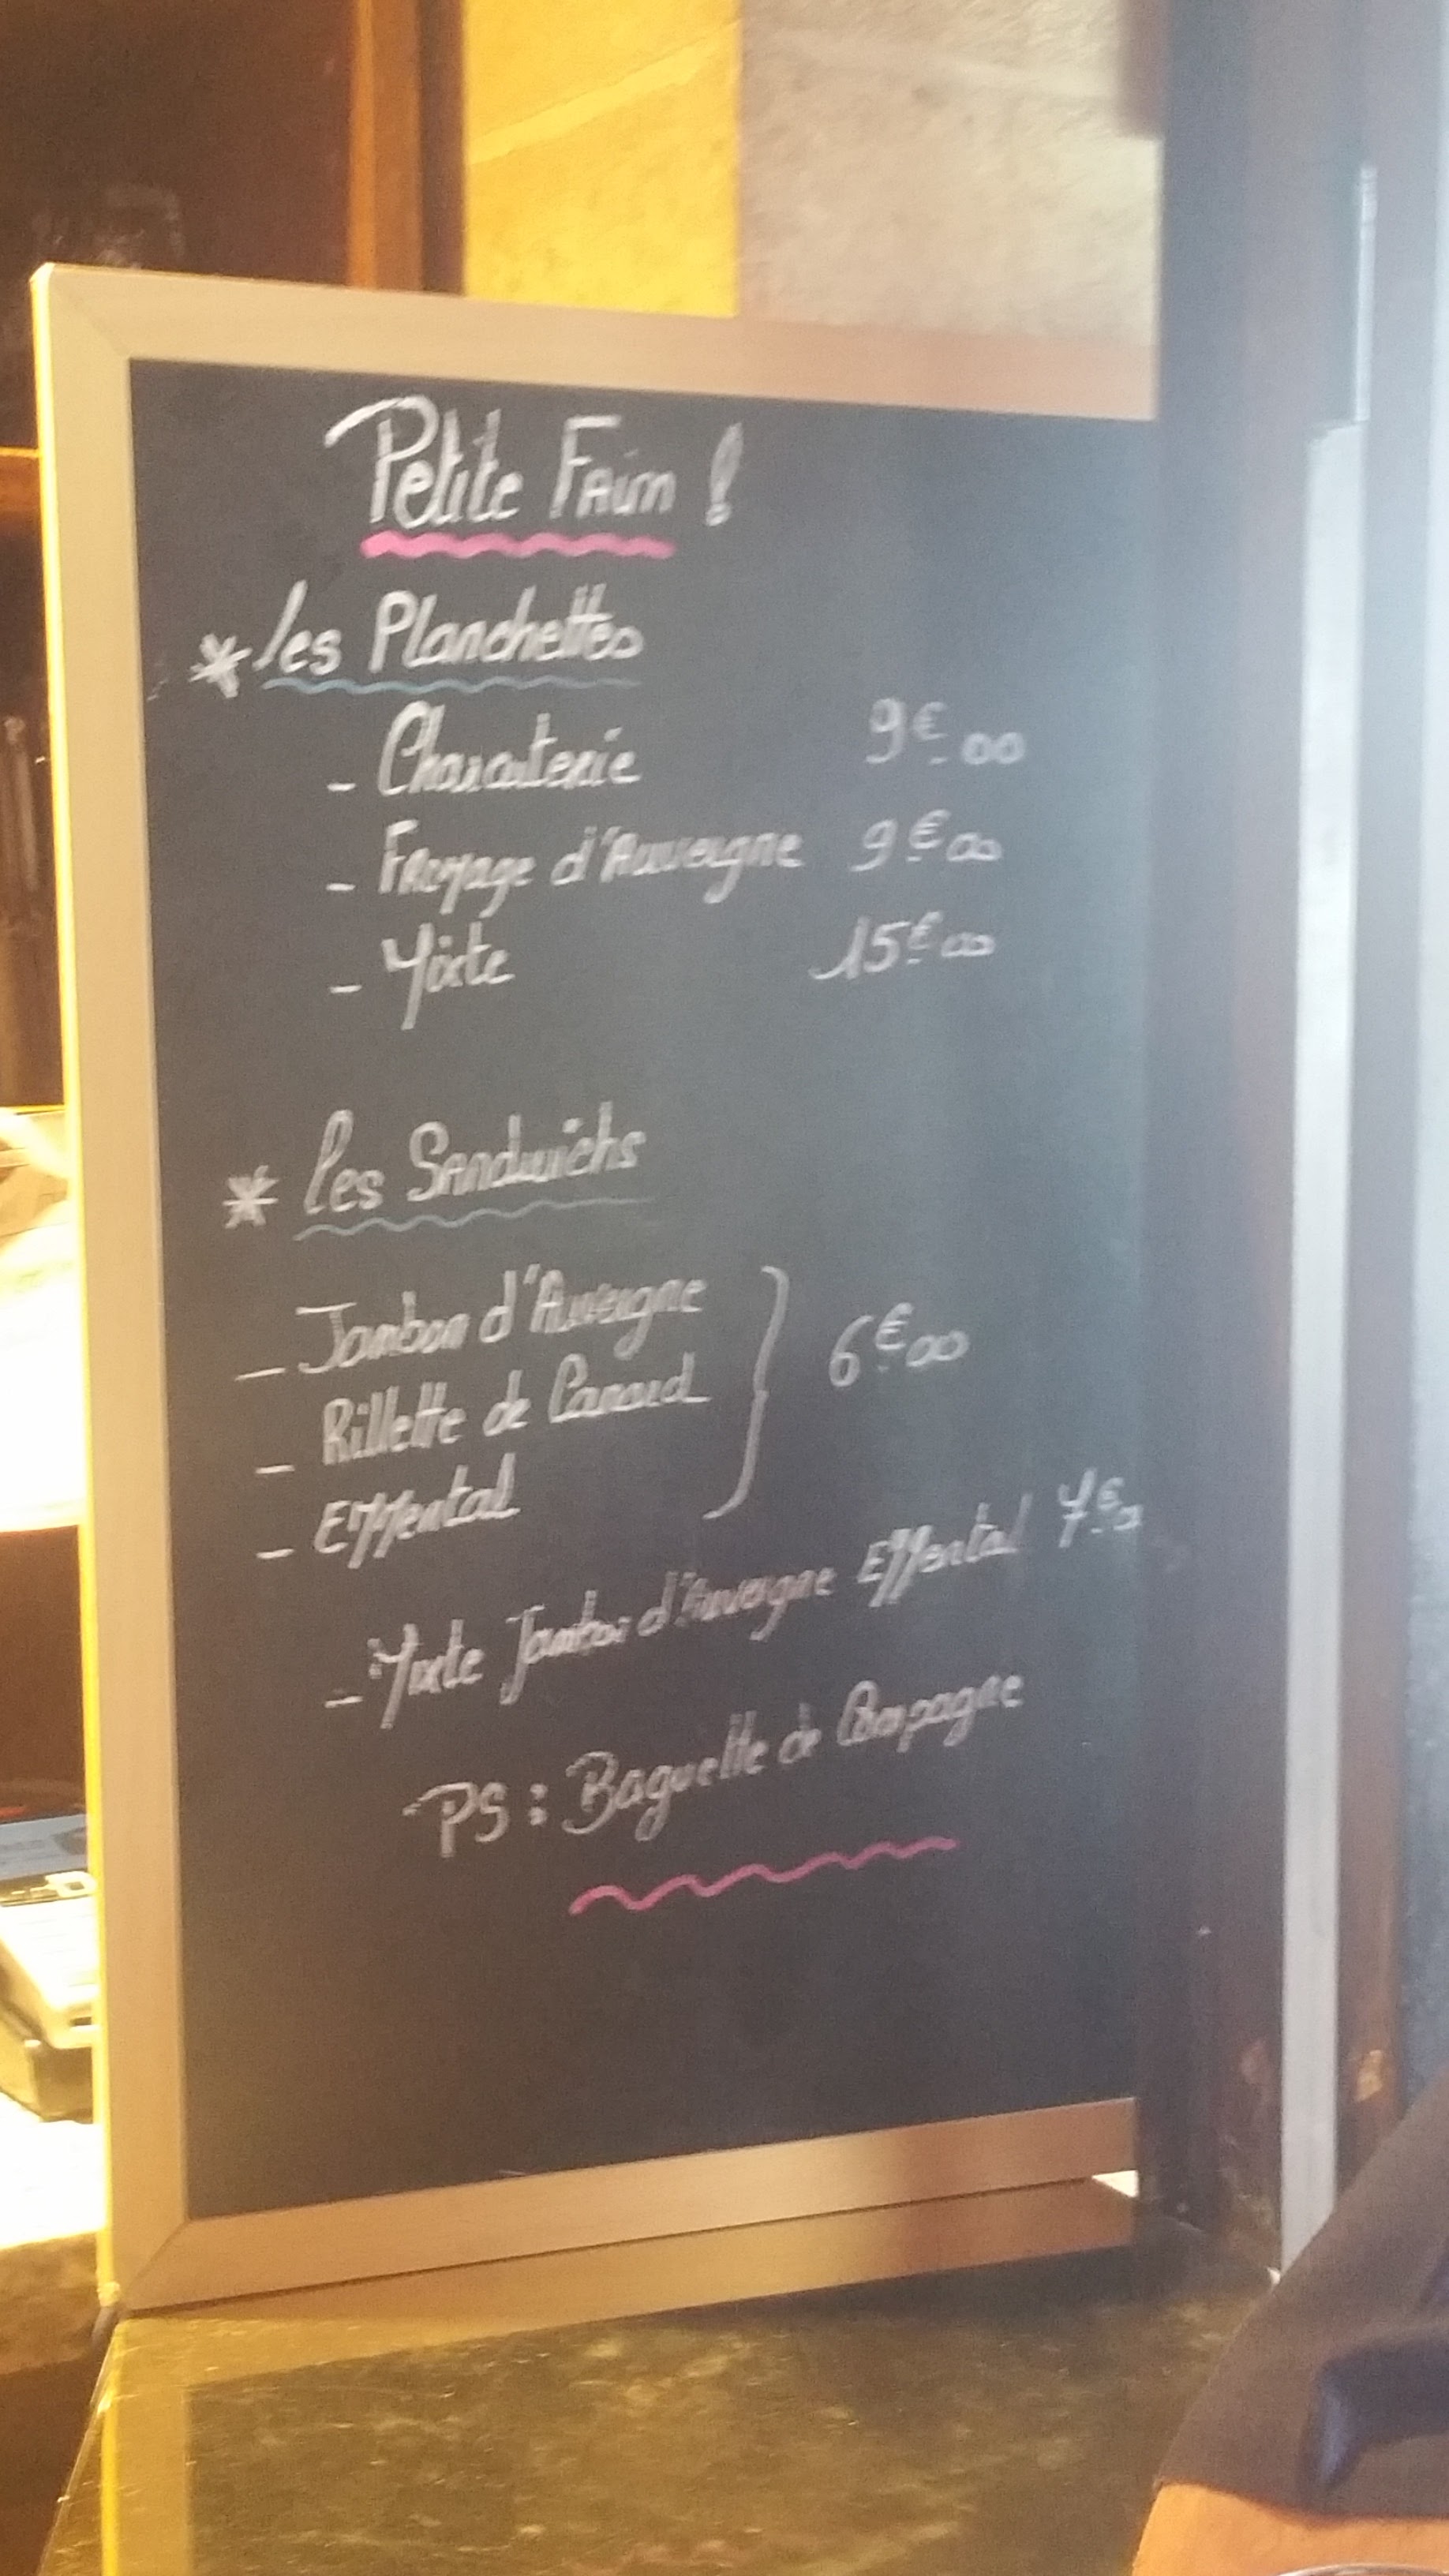 Petite Faim !
* Les Planchettes
- Charcuterie 9€00
- Fromage d'Auvergne 9€00
- Mixte 15€00
* Les Sandwichs
- Jambon d'Auvergne
- Rillette de Canard } 6€00
- Emmental
- Mixte Jambon d'Auvergne Emmental 7€0
PS : Baguette de Campagne